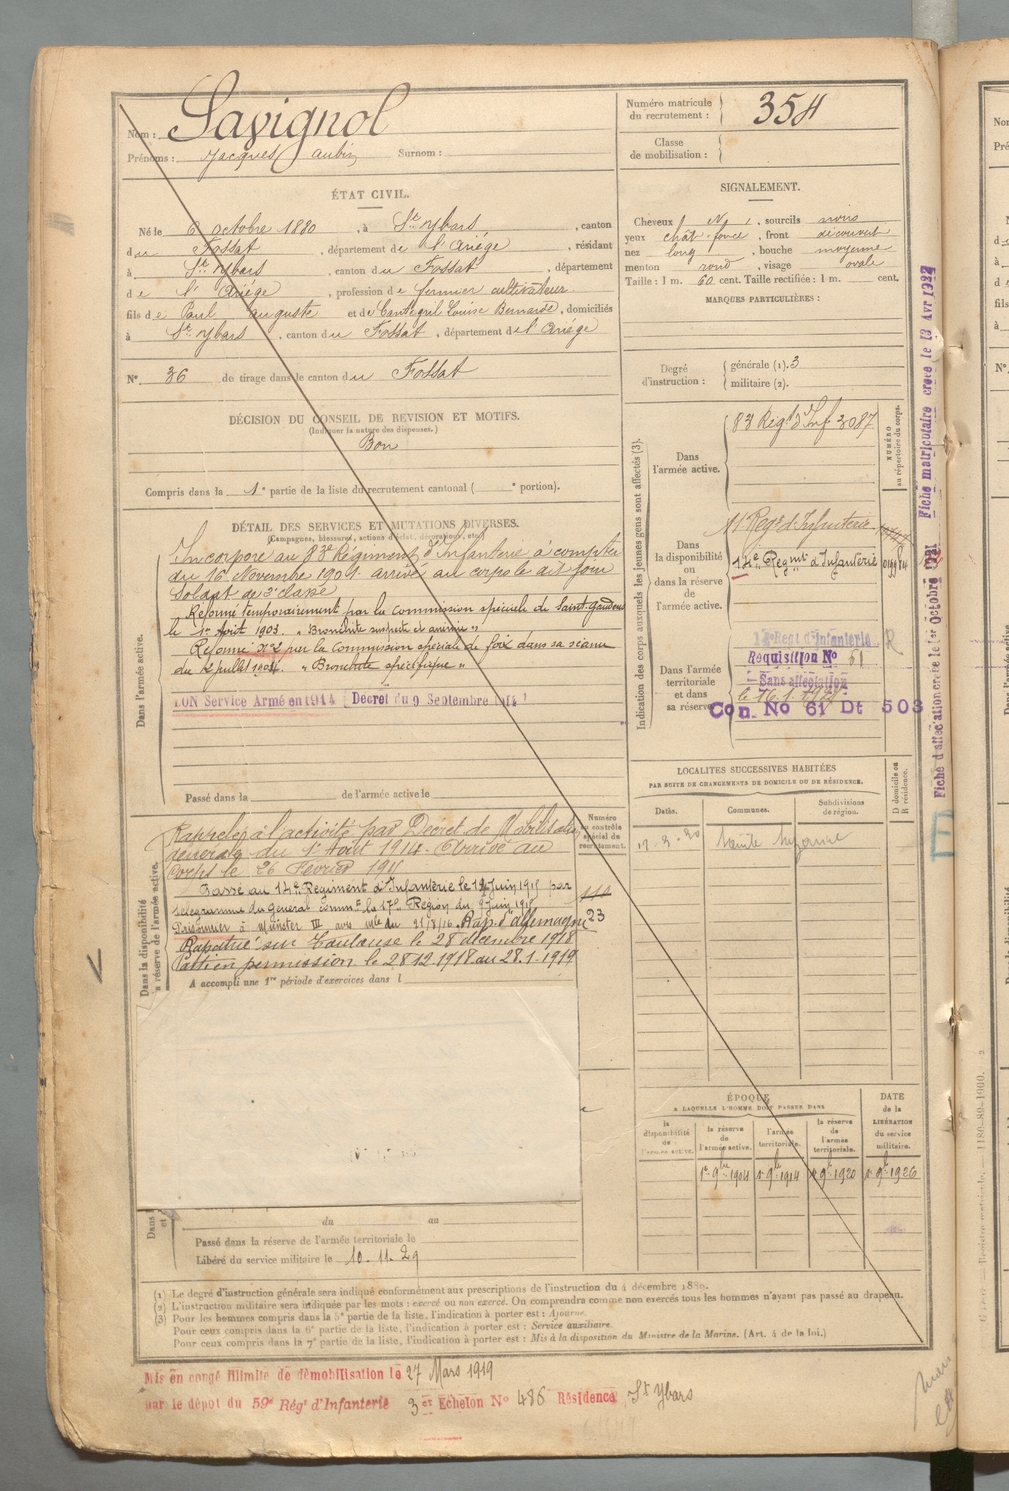 Nom : Savignol
Prénoms : Jacques Aubin Surnom :
Numéro matricule du recrutement : 354
Classe de mobilisation :
ÉTAT CIVIL.
Né le 6 octobre 1880, à St Ybars, canton
du Fossat, département de l'Ariège, résidant
à St Ybars, canton du Fossat, département
de l'Ariège, profession de fermier cultivateur
fils de Paul Auguste et de Cantegril Louise Bernarde, domiciliés
à St Ybars, canton du Fossat, département de l'Ariège
N° 36 de tirage dans le canton du Fossat
SIGNALEMENT.
Cheveux N, sourcils noirs
yeux chât-foncé, front découvert
nez long, bouche moyenne
menton rond, visage ovale
Taille : 1 m. 60 cent. Taille rectifiée : 1 m. cent.
MARQUES PARTICULIÈRES :
Degré d'instruction : générale (1). 3
militaire (2).
DÉCISION DU CONSEIL DE REVISION ET MOTIFS.
(Indiquer la nature des dispenses.)
Bon
Compris dans la 1e partie de la liste du recrutement cantonal ( e portion).
DÉTAIL DES SERVICES ET MUTATIONS DIVERSES.
(Campagnes, blessures, actions d'éclat, décorations, etc.)
Dans l'armée active.
Incorporé au 83e Régiment d'Infanterie à compter
du 16 Novembre 1901. arrivé au corps le dit jour
Soldat de 2e classe
Réformé temporairement par la Commission spéciale de Saint-Gaudens
le 1er Août 1903. " Bronchite suspecte et anémie "
Réformé N°2 par la Commission spéciale de foix dans sa séance
du 2 juillet 1904. " Bronchite spécifique "
BON Service Armé en 1914 [Decret du 9 Septembre 1914]
Passé dans la de l'armée active le
Indication des corps auxquels les jeunes gens sont affectés (3).
NUMÉRO au répertoire du corps.
Dans l'armée active.
83 Régt d'Inf 3087
Dans la disponibilité ou dans la réserve de l'armée active.
11 Régt d'Infanterie
14e Regmt d'Infanterie
Dans l'armée territoriale et dans sa réserve
14e Regt d'Infanterie R
Requisition No 61
Sans affectation
Con. No 61 Dt 503
Fiche d'affectation créée le 1er Octobre 1921
Fiche matriculaire créée le 13 Avr 1922
LOCALITES SUCCESSIVES HABITÉES
PAR SUITE DE CHANGEMENTS DE DOMICILE OU DE RÉSIDENCE.
Dates.
Communes.
Subdivisions de région.
D domicile ou R résidence.
Sainte Suzanne
Dans la disponibilité
a réserve de l'armée active.
Numéro au contrôle spécial du recrutement.
Rappelé à l'activité par Décret de Mobilisation
générale du 1er Août 1914. Arrivé au
Corps le 26 Février 1915
Passé au 14e Regiment d'Infanterie le 12 Juin 1915 par
télégramme du Général Commt la 17e Région du 9 Juin 1915
Prisonnier à Münster III avis mle du 21/8/16. Rap. d'allemagne 23
Rapatrié sur Toulouse le 28 décembre 1918
Parti en permission le 28.12.1918 au 28.1.1919
A accompli une 1re période d'exercices dans l
ÉPOQUE
A LAQUELLE L'HOMME DOIT PASSER DANS
la disponibilité de l'armée active.
la réserve de l'armée active.
l'armée territoriale.
la réserve de l'armée territoriale.
DATE de la LIBÉRATION du service militaire.
1er 9bre 1904
1er 9bre 1914
1er 9bre 1920
1er 9bre 1926
Dans
et
du au
Passé dans la réserve de l'armée territoriale le
Libéré du service militaire le 10.11.29
(1) Le degré d'instruction générale sera indiqué conformément aux prescriptions de l'instruction du 4 décembre 1889.
(2) L'instruction militaire sera indiquée par les mots : exercé ou non exercé. On comprendra comme non exercés tous les hommes n'ayant pas passé au drapeau.
(3) Pour les hommes compris dans la 5e partie de la liste, l'indication à porter est : Ajourné.
Pour ceux compris dans la 6e partie de la liste, l'indication à porter est : Service auxiliaire.
Pour ceux compris dans la 7e partie de la liste, l'indication à porter est : Mis à la disposition du Ministre de la Marine. (Art. 4 de la loi.)
Mis en congé illimité de démobilisation le 27 Mars 1919
par le dépôt du 59e Régt d'Infanterie 3e Echelon No 486 Résidence St Ybars